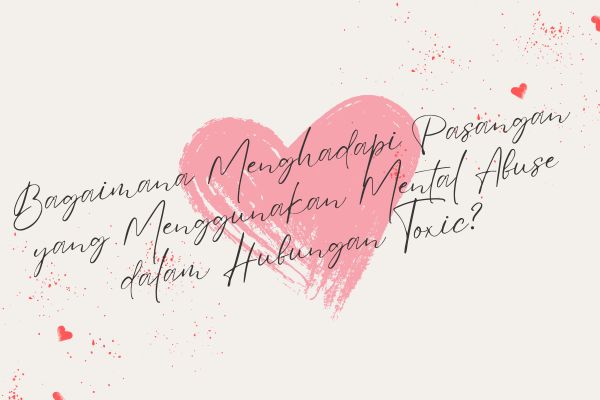 Bagaimana Menghadapi Pasangan
yang Menggunakan Mental Abuse
dalam Hubungan Toxic?